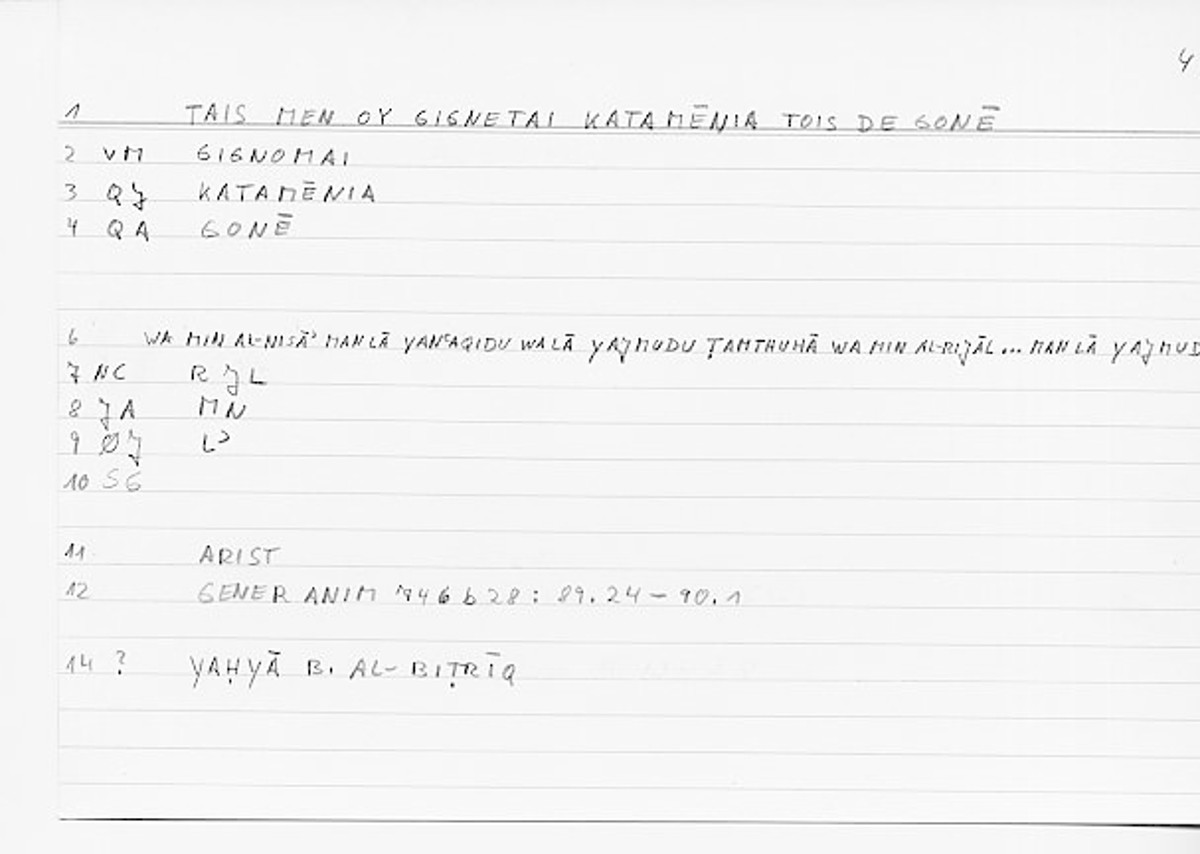 4
1 TAIS MEN OY GIGNETAI KATAMĒNIA TOIS DE GONĒ
2 VM GIGNOMAI
3 QJ KATAMĒNIA
4 QA GONĒ
6 WA MIN AL-NISĀʾ MAN LĀ YANʿAQIDU WA LĀ YAJMUDU ṬAMTHUHĀ WA MIN AL-RIJĀL ... MAN LĀ YAJMUD
7 NC RJL
8 JA MN
9 ØJ Lʾ
10 SG
11 ARIST
12 GENER ANIM 746 b 28 : 89.24 – 90.1
14 ? YAḤYĀ B. AL-BIṬRĪQ